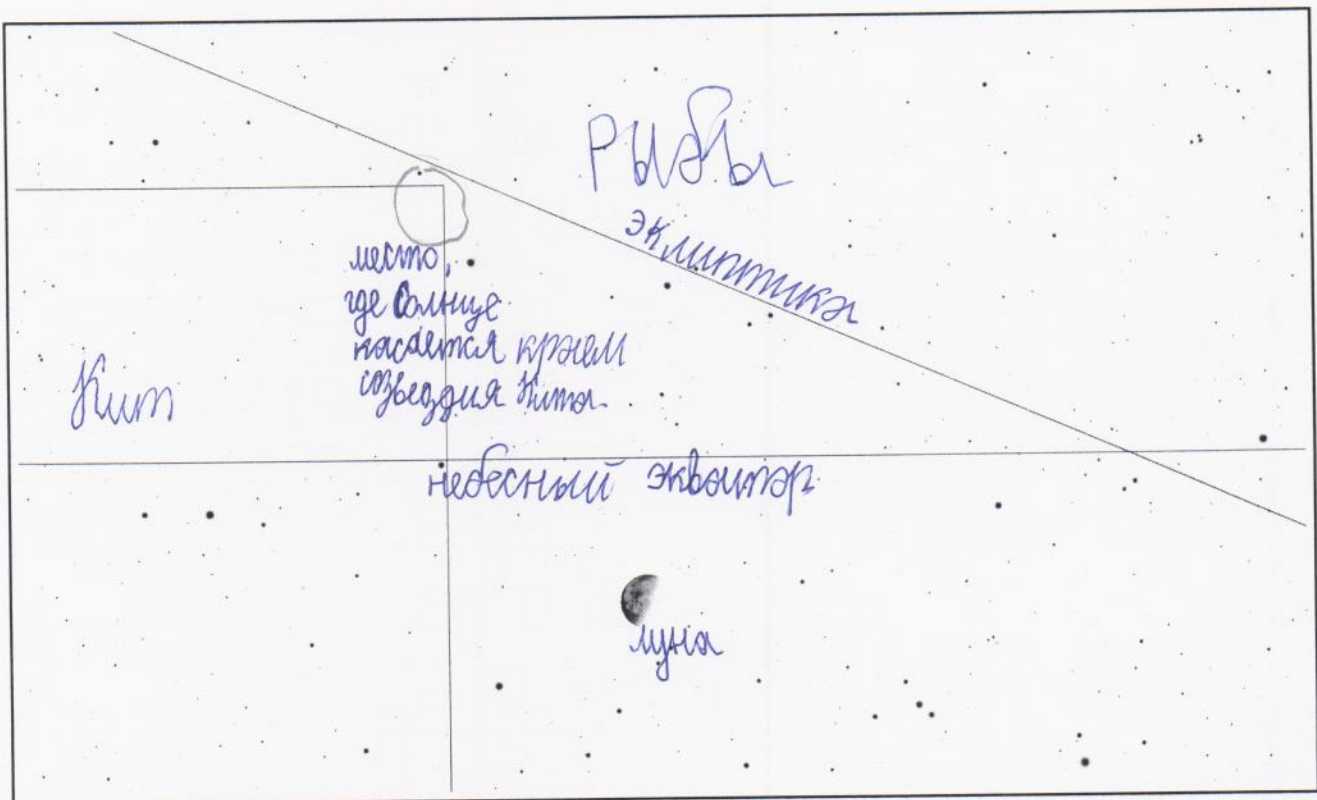 Рыбы
эклиптика
место,
где Солнце
касается краем
созвездия Кита.
Кит
небесный экватор
луна